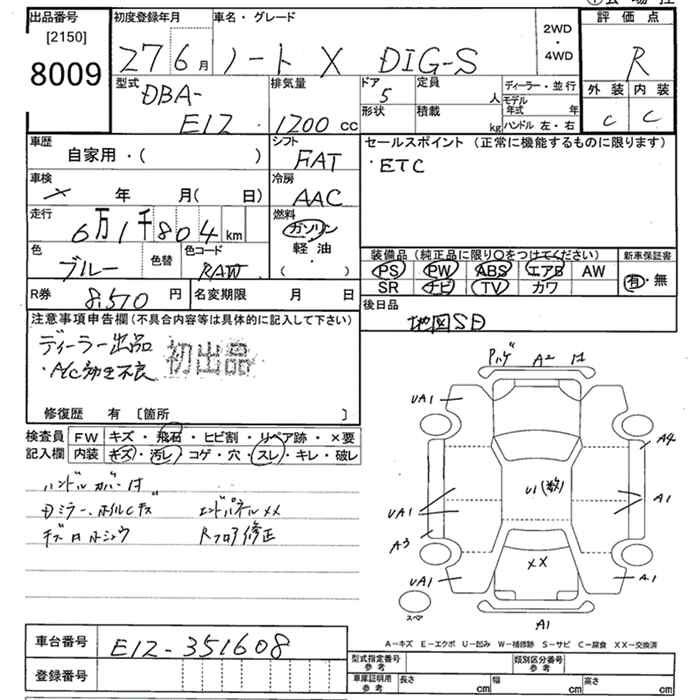 出品番号
[2150]
8009
初度登録年月
27 6 月
車名・グレード
ノート X DIG-S
2WD
・
4WD
評価点
R
外装 内装
C C
型式
DBA-
E12
排気量
1200 cc
ドア
5
形状
定員
人
積載
kg
ディーラー・並行
モデル年式 年
ハンドル 左・右
車歴
自家用・( )
シフト
FAT
セールスポイント (正常に機能するものに限ります)
・ETC
車検
× 年 月( 日)
冷房
AAC
走行
6万1千804 km
燃料
ガソリン
軽油
( ・ )
色
ブルー
色替
色コード
RAW
装備品 (純正品に限り○をつけてください)
新車保証書
PS PW ABS エアB AW
SR ナビ TV カワ
有・無
R券 8,510 円
名変期限 月 日
後日品
地図SD
注意事項申告欄 (不具合内容等は具体的に記入して下さい)
ディーラー出品
初出品
・A/C効き不良
修復歴 有 [箇所 ]
検査員
記入欄
FW キズ・飛石・ヒビ割・リペア跡・×要
内装 キズ・汚レ・コゲ・穴・スレ・キレ・破レ
ハンドルカバー付
Dミラー、ホイルCキズ エンドパネルXX
キズロホシュウ Rフロア修正
A2
UA1
A4
U1(数)
UA1
A1
A3
XX
UA1
A1
スペア
A1
A-キズ E-エクボ U-凹み W-補修跡 S-サビ C-腐食 XX-交換済
車台番号 E12-351608
登録番号
型式指定番号
参考
類別区分番号
参考
車庫証明用
参考
長さ cm
幅 cm
高さ cm